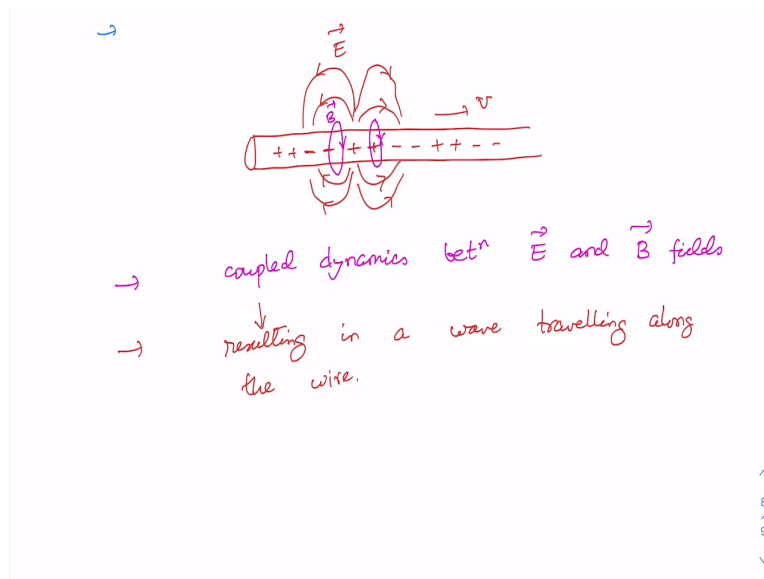 →
E⃗
B⃗
→ v
+ + - - + + - - + + - -
→ coupled dynamics betⁿ E⃗ and B⃗ fields
↓
→ resulting in a wave travelling along
the wire.